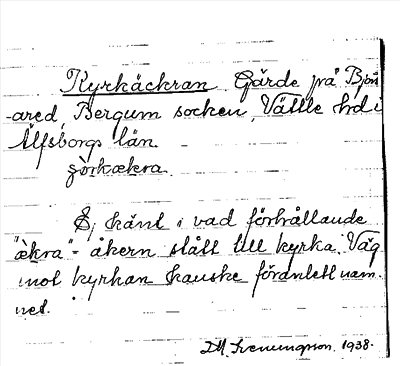 Kyrkäckran Gärde på Björ
-ared, Bergum socken, Vättle hd i
Älfsborgs län.
Ej känt i vad förhållande
"ækra" - åkern stått till kyrka. Väg
mot kyrkan kanske föranlett nam-
net.
1938.